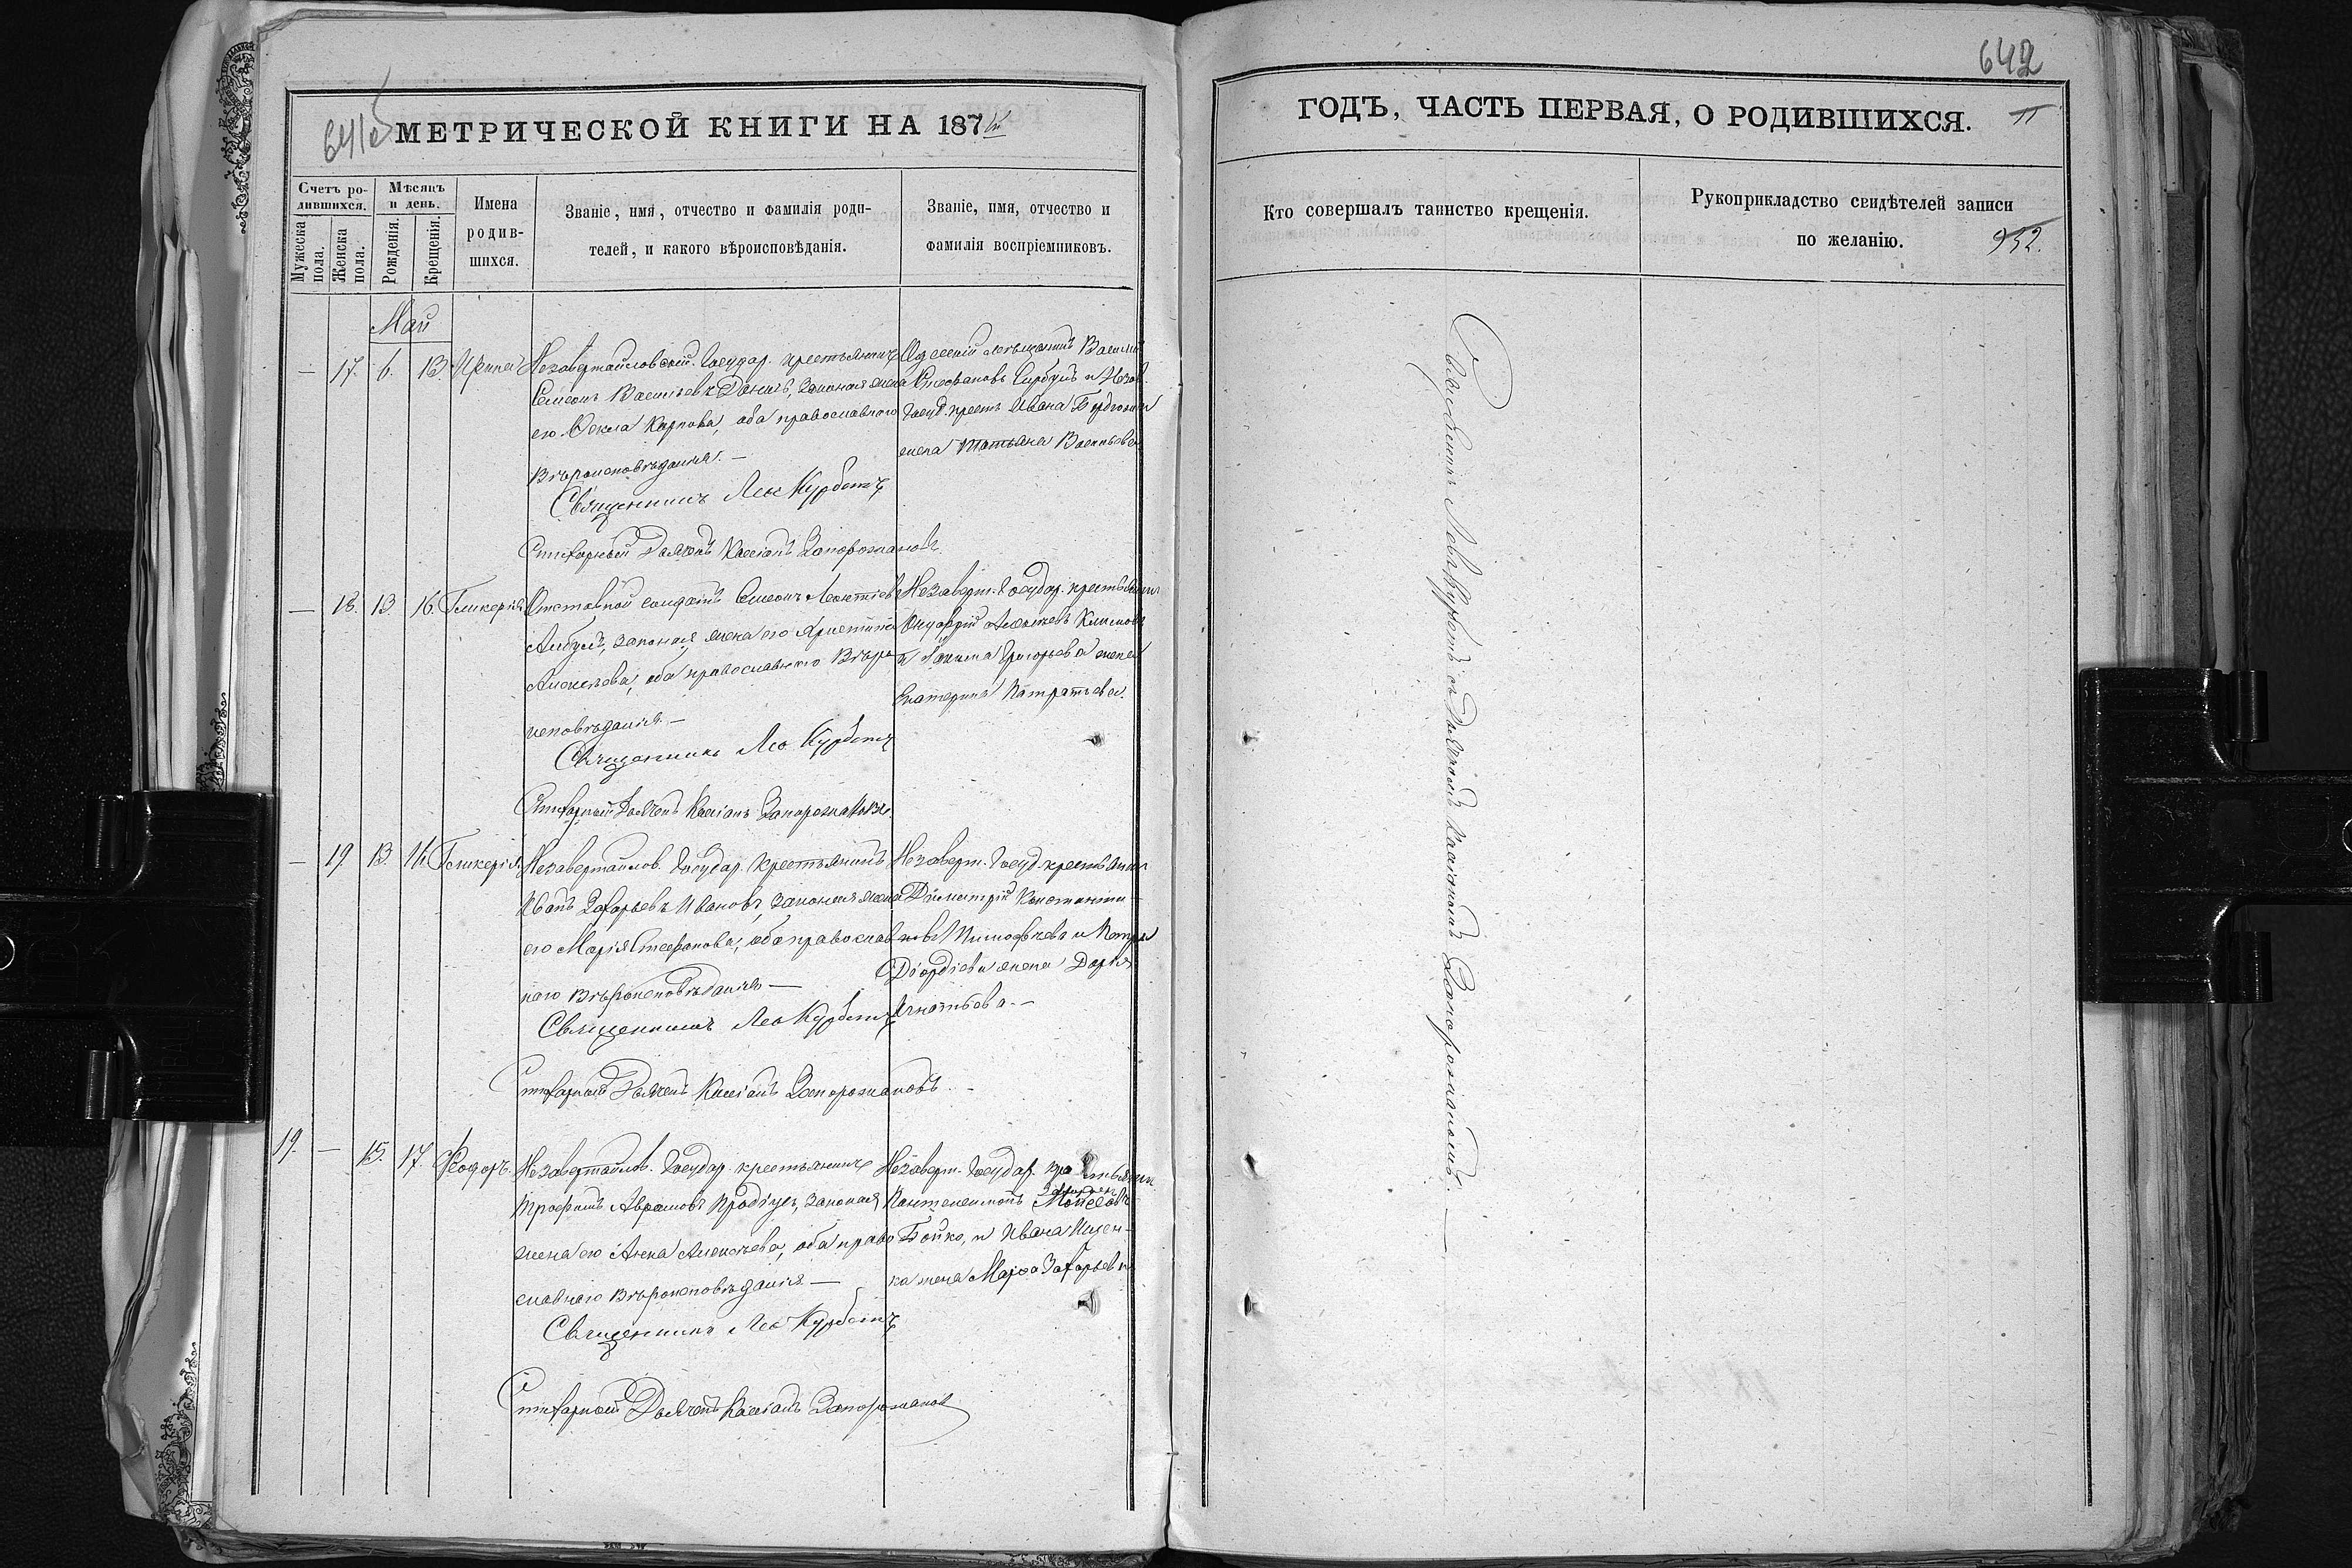 641об
МЕТРИЧЕСКОЙ КНИГИ НА 187
Счетъ ро-
дившихся.
Мужеска пола.
Женска пола.
Мѣсяцъ и день.
Рожденія.
Крещенія.
Имена родив-
шихся.
Званіе, имя, отчество и фамилія роди-
телей, и какого вѣроисповѣданія.
Званіе, имя, отчество и
фамилія воспріемниковъ.
Май
— 17. 6. 13. Ирина
Незавертайловскій Государ. крестьянинъ
Симеонъ Васильевъ, законная жена
его Ѳекла Карпова, оба православнаго
вѣроисповѣданія. —
Священникъ Лев Курбетъ
Стихарный Дьячекъ Кассіанъ Запорожановъ.
Одесскій мѣщанинъ Василій
Стефановъ Сырбулъ и Незав.
Госуд. крест. Ивана
жена Татьяна Васильева
— 18. 13. 16. Гликерія
Отставной солдатъ Симеонъ Леонтіевъ
законная жена его Христина
Алексѣева, оба православнаго вѣро-
исповѣданія. —
Священникъ Лев Курбетъ
Стихарный Дьячекъ Кассіанъ Запорожановъ.
Незаверт. Государ. крестьянинъ
Онуфрій Климовъ
и Григорьева жена
Екатерина
— 19 13. 16. Гликерія.
Незавертайлов. Государ. крестьянинъ
Иванъ Захарьевъ Ивановъ, законная жена
его Марія Стефанова, оба православ-
наго вѣроисповѣданія —
Священникъ Лев Курбетъ
Стихарный Дьячекъ Кассіанъ Запорожановъ. —
Незаверт. Госуд. крестьянинъ
Димитрій Константи-
новъ Тимофѣевъ и Петра
жена Дарья
Игнатьева. —
19. — 15. 17. Ѳеодоръ.
Незавертайлов. Государ. крестьянинъ
Трофимъ Аврамовъ законная
жена его Анна Алексѣева, оба право-
славнаго вѣроисповѣданія. —
Священникъ Лев Курбетъ
Стихарный Дьячекъ Кассіанъ Запорожанов
Незаверт. Государ. крестьянин
Пантелеимонъ Моисеовъ
Бойко, и Ивана Ищен-
ка жена Марѳа Захарьева
642
ГОДЪ, ЧАСТЬ ПЕРВАЯ, О РОДИВШИХСЯ.
Кто совершалъ таинство крещенія.
Рукоприкладство свидѣтелей записи
по желанію.
952.
Священникъ Левъ Курбетъ съ Дьячкомъ Кассіаномъ Запорожаномъ. —